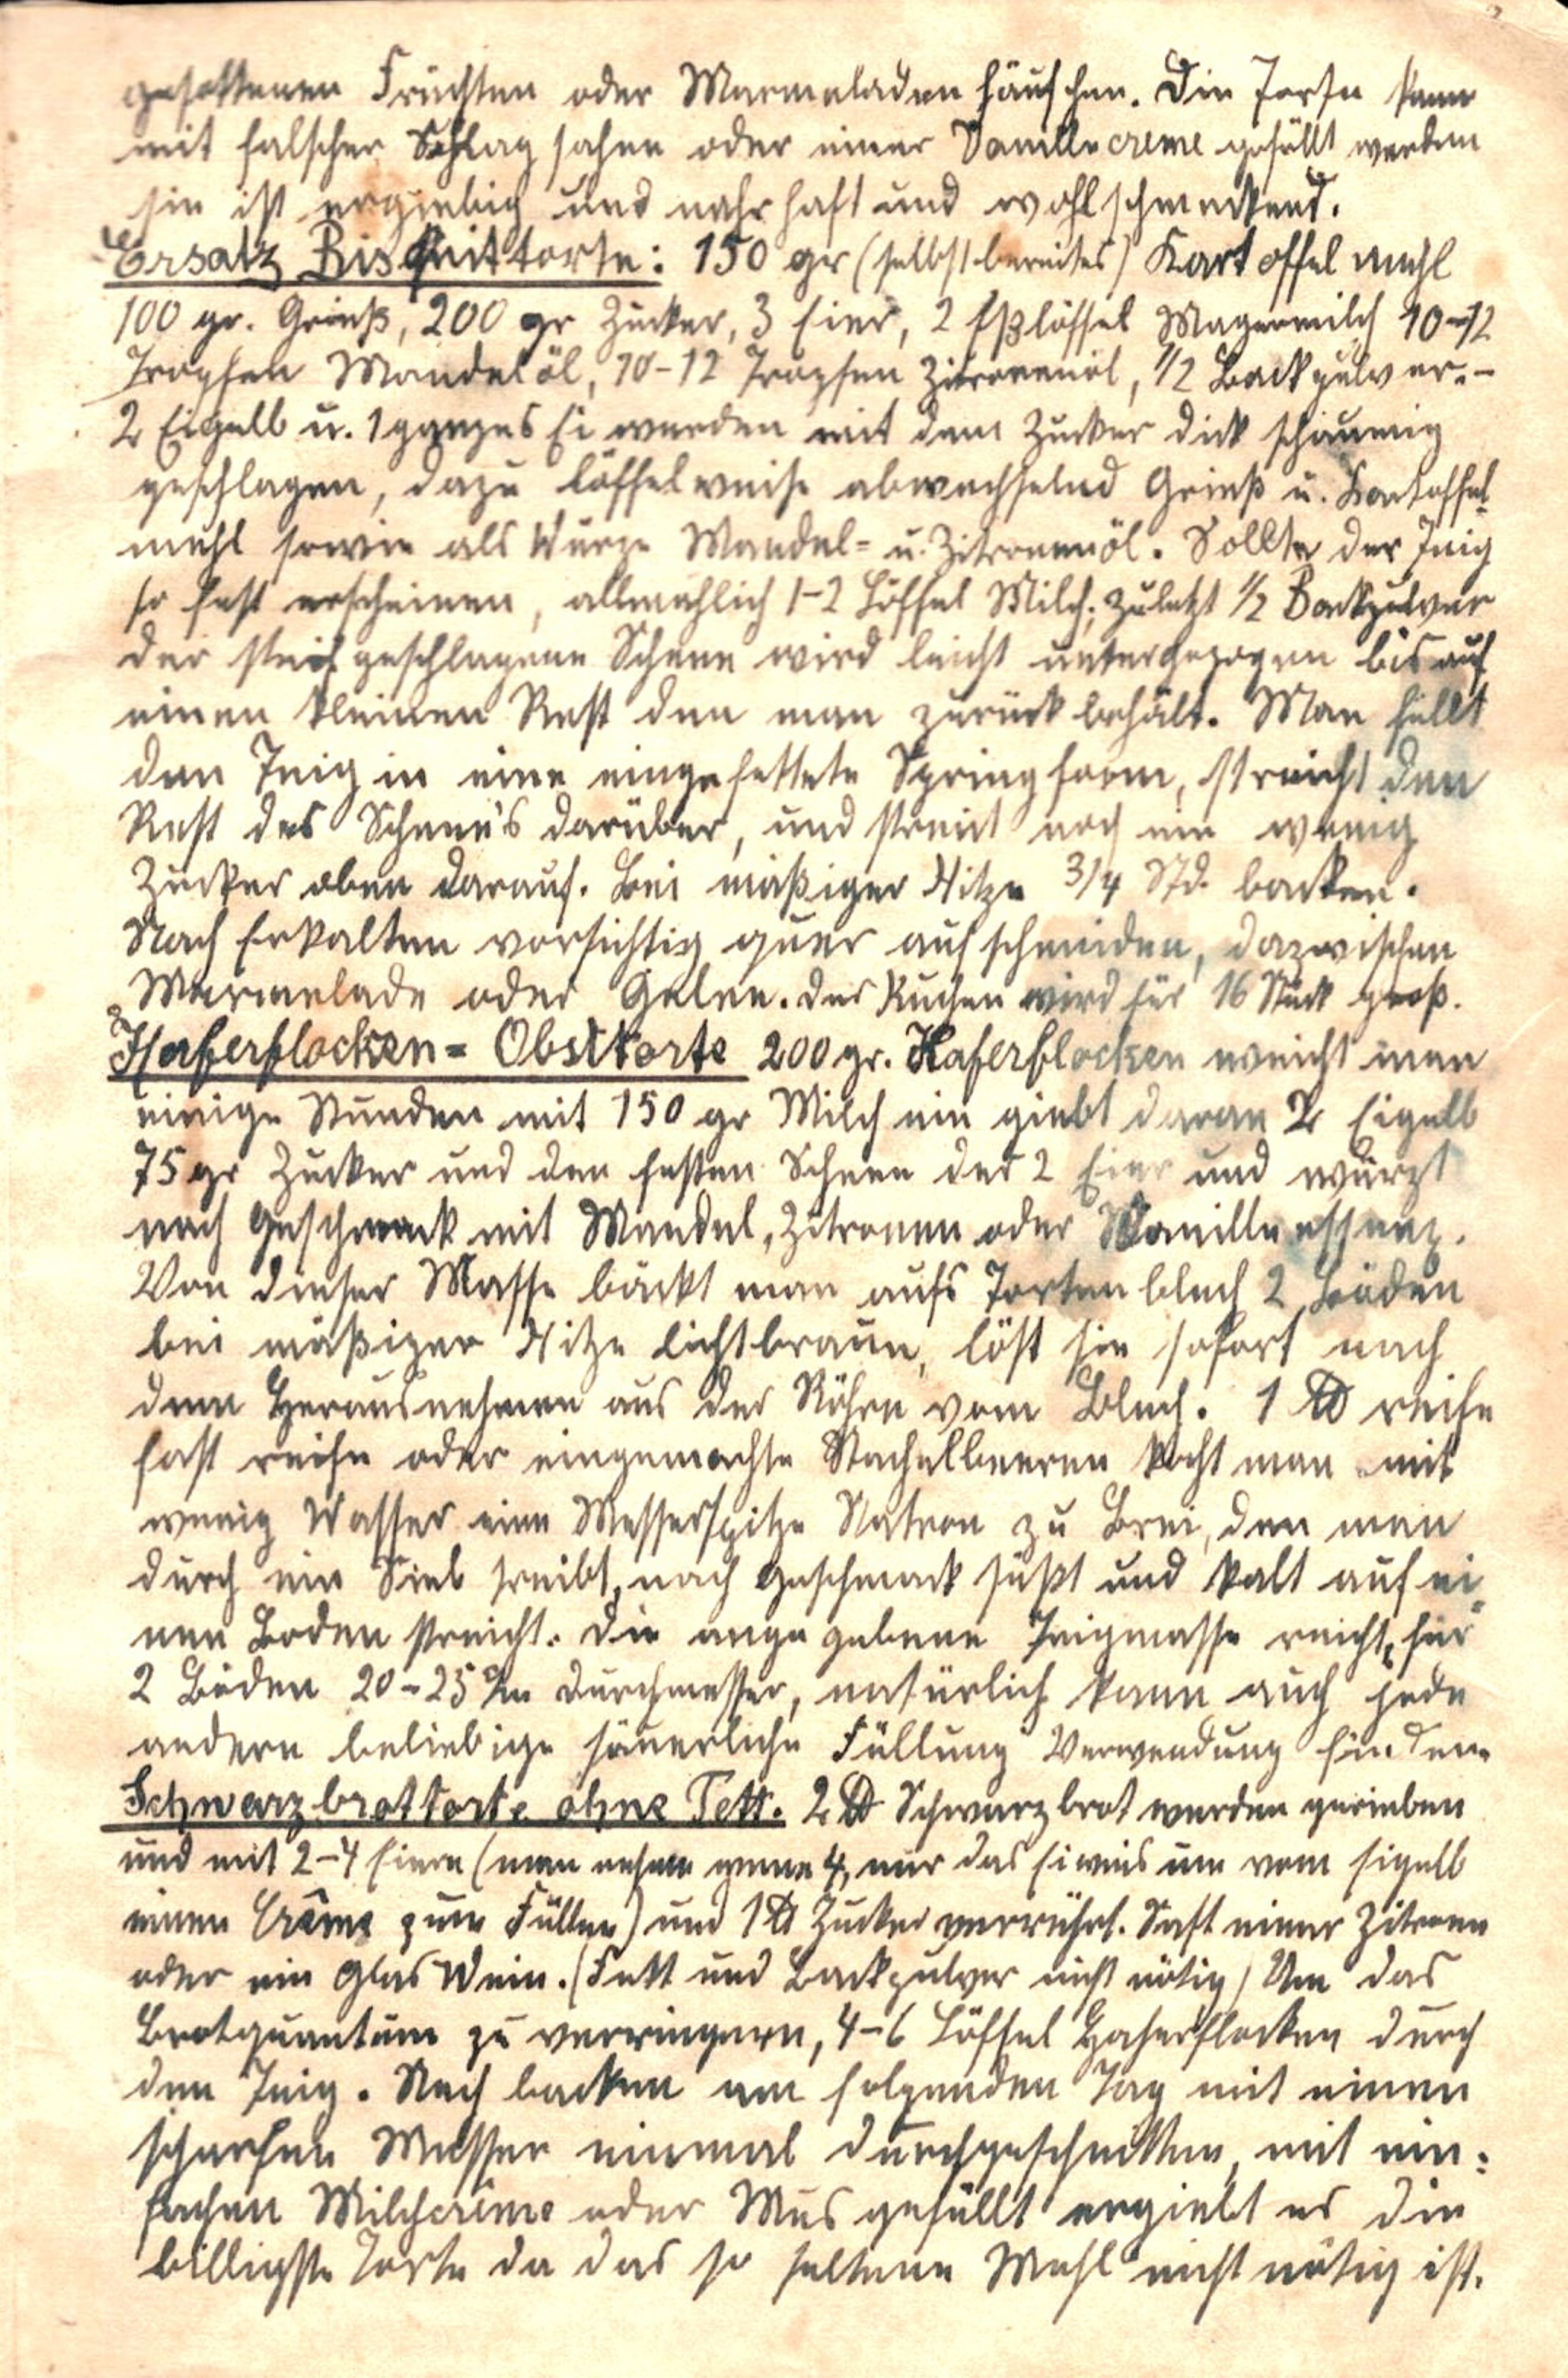 gesottenen Früchten oder Marmeladen häufchen. Die Torte kann
mit falscher Schlagsahne oder einer Vanillecreme gefüllt werden
sie ist ergiebig und nahrhaft und wohlschmeckend.
Ersatz Biskuittorte: 150 gr (selbstbereites) Kartoffelmehl
100 gr. Grieß, 200 gr Zucker, 3 Eier, 2 Eßlöffel Magermilch 10-12
Tropfen Mandelöl, 10-12 Tropfen Zitronenöl, 1/2 Backpulver.-
2 Eigelb u. 1 ganzes Ei werden mit dem Zucker dick schaumig
geschlagen, dazu löffelweise abwechselnd Grieß u. Kartoffel-
mehl sowie als Würze Mandel= u. Zitronenöl. Sollte der Teig
so fest erscheinen, allmählich 1-2 Löffel Milch, zuletzt 1/2 Backpulver
der steif geschlagene Schnee wird leicht untergezogen bis auf
einen kleinen Rest den man zurück behält. Man füllt
den Teig in eine eingefettete Springform, streicht den
Rest des Schnee's darüber, und streut noch ein wenig
Zucker oben darauf. Bei mäßiger Hitze 3/4 Std. backen.
Nach Erkalten vorsichtig quer aufschneiden, dazwischen
Marmelade oder Gelee. Der Kuchen wird für 16 Stück groß.
Haferflocken= Obsttorte 200 gr. Haferflocken weicht man
einige Stunden mit 150 gr Milch ein giebt daran 2 Eigelb
75 gr Zucker und den festen Schnee der 2 Eier und würzt
nach Geschmack mit Mandel, Zitronen oder Vanilleessenz.
Von dieser Masse bäckt man aufs Tortenblech 2 Böden
bei mäßiger Hitze lichtbraun, löst sie sofort nach
dem Herausnehmen aus der Röhre vom Blech. 1 ℔ reife
fast reife oder eingemachte Stachelbeeren kocht man mit
wenig Wasser eine Messerspitze Natron zu Brei, den man
durch ein Sieb treibt, nach Geschmack süßt und kalt auf ei-
nen Boden streicht. Die angegebene Teigmasse reicht für
2 Böden 20-25 c/m Durchmesser, natürlich kann auch jede
andere beliebige säuerliche Füllung Verwendung finden.
Schwarzbrottorte ohne Fett. 2 ℔ Schwarzbrot werden gerieben
und mit 2-4 Eiern (man nehme wenn 4, nur das Eiweis um vom Eigelb
einen Crême zum Füllen) und 1 ℔ Zucker verrührt. Saft einer Zitrone
oder ein Glas Wein. (Fett und Backpulver nicht nötig) Um das
Brotquantum zu verringern, 4-6 Löffel Haferflocken durch
den Teig. Nach backen am folgenden Tag mit einem
scharfen Messer einmal durchgeschnitten, mit ein=
fachen Milchcrême oder Mus gefüllt ergiebt es die
billigste Torte da das so seltene Mehl nicht nötig ist.